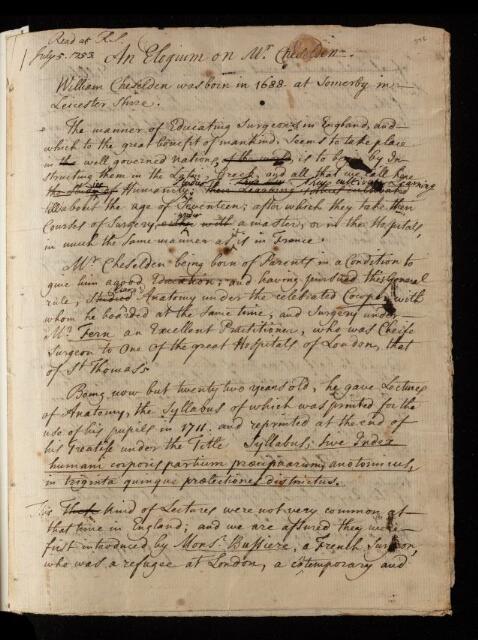 Read at R.S.
July 5. 1753.
An Elogium on Mr. Cheselden.
William Cheselden was born in 1688 at Somerby in
Leicester Shire.
The manner of Educating Surgeons in England, and
which to the great benefit of mankind, seems to take place
in the well governed nations, is to begin by In-
structing them in the Latin, Greek, and all that we call here
Humanity; Learning
till about the age of Seventeen; after which they take their
Courss of Surgery under a master, or in the Hospitals,
in much the same manner as is in France.
Mr. Cheselden being born of Parents in a Condition to
give him a good Education; and having pursued this General
rule, Learn'd Anatomy under the celebrated Cowper with
whom he boarded at the same time; and Surgery under
Mr. Fern an Excellent Practitioner, who was Cheife
Surgeon to One of the great Hospitals of London, that
of St Thomass
Being now but twenty two years old, he gave Lectures
of Anatomy, the Syllabus of which was printed for the
use of his pupils in 1711. and reprinted at the end of
his Treatise under the Title Syllabus; sive Index
humani corporis partium præcipuarum, anatomicus,
in triginta quinque prælectiones districtus.
This kind of Lectures were not very common at
that time in England; and we are assured they were
first introduced by Monsr. Bussiere, a French Surgeon,
who was a refugee at London, a cotemporary and